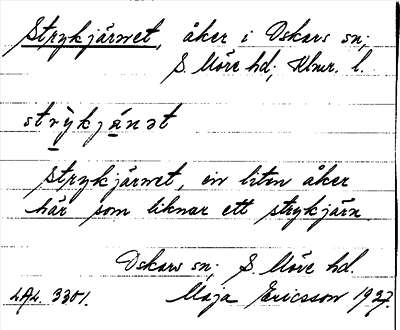 Strykjärnet, åker i Oskars sn;
S Möre hd; Klmr. l.
strỳkjä́nət
Strykjärnet, en liten åker
här som liknar ett strykjärn
Oskars sn; S. Möre hd.
LAL. 3301. Maja Ericsson 1937.